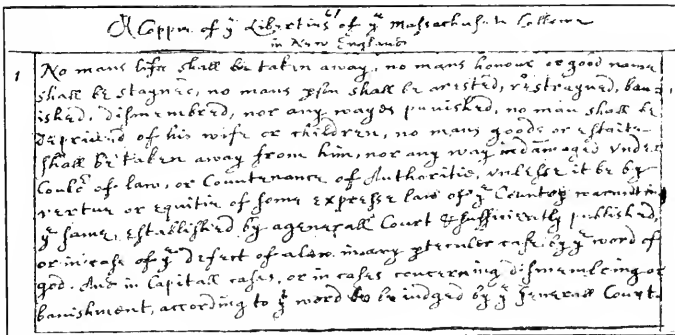 A Coppie of yͤ Liberties of yͤ Massachusets Collonie
in New England
1 No mans life shall be taken away, no mans honour or good name
shall be stayned, no mans pson shall be arested, restrayned, ban
ished, dismembred, nor any wayes punished, no man shall be
deprived of his wife or children, no mans goods or estaite
shall be taken away from him, nor any way indamaged vnder
coulʳ of law, or Countenance of Authoritie, vnlesse it be by
vertue or equitie of some expresse law of yͤ Country warranting
yͤ same, established by a generall Court & sufficiently published,
or in case of yͤ defect of a law in any pteculer case by yͤ word of
god. And in Capitall cases, or in cases concerning dismembring or
banishment, according to yͭ word to be iudged by yͤ generall Court.